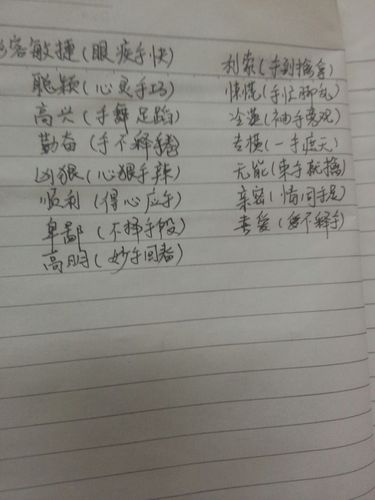 形容敏捷(眼疾手快)
聪颖(心灵手巧)
高兴(手舞足蹈)
勤奋(手不释卷)
凶狠(心狠手辣)
顺利(得心应手)
卑鄙(不择手段)
高明(妙手回春)
利索(手到擒拿)
惊慌(手忙脚乱)
冷漠(袖手旁观)
专横(一手遮天)
无能(束手就擒)
亲密(情同手足)
喜爱(爱不释手)